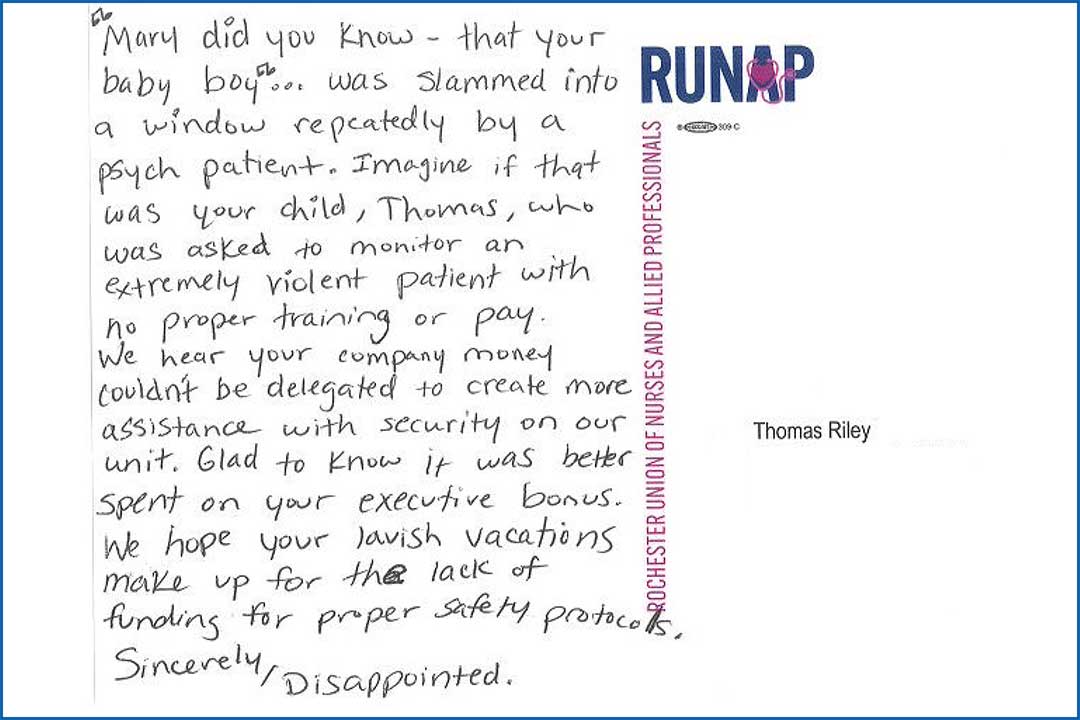 "Mary did you know - that your
baby boy"... was slammed into
a window repeatedly by a
psych patient. Imagine if that
was your child, Thomas, who
was asked to monitor an
extremely violent patient with
no proper training or pay.
We hear your company money
couldn't be delegated to create more
assistance with security on our
unit. Glad to know it was better
spent on your executive bonus.
We hope your lavish vacations
make up for the lack of
funding for proper safety protocols.
Sincerely, Disappointed.
RUNAP
309 C
ROCHESTER UNION OF NURSES AND ALLIED PROFESSIONALS
Thomas Riley